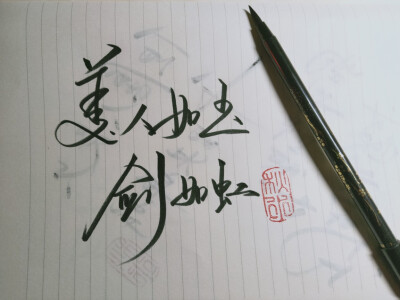 美人如玉
剑如虹